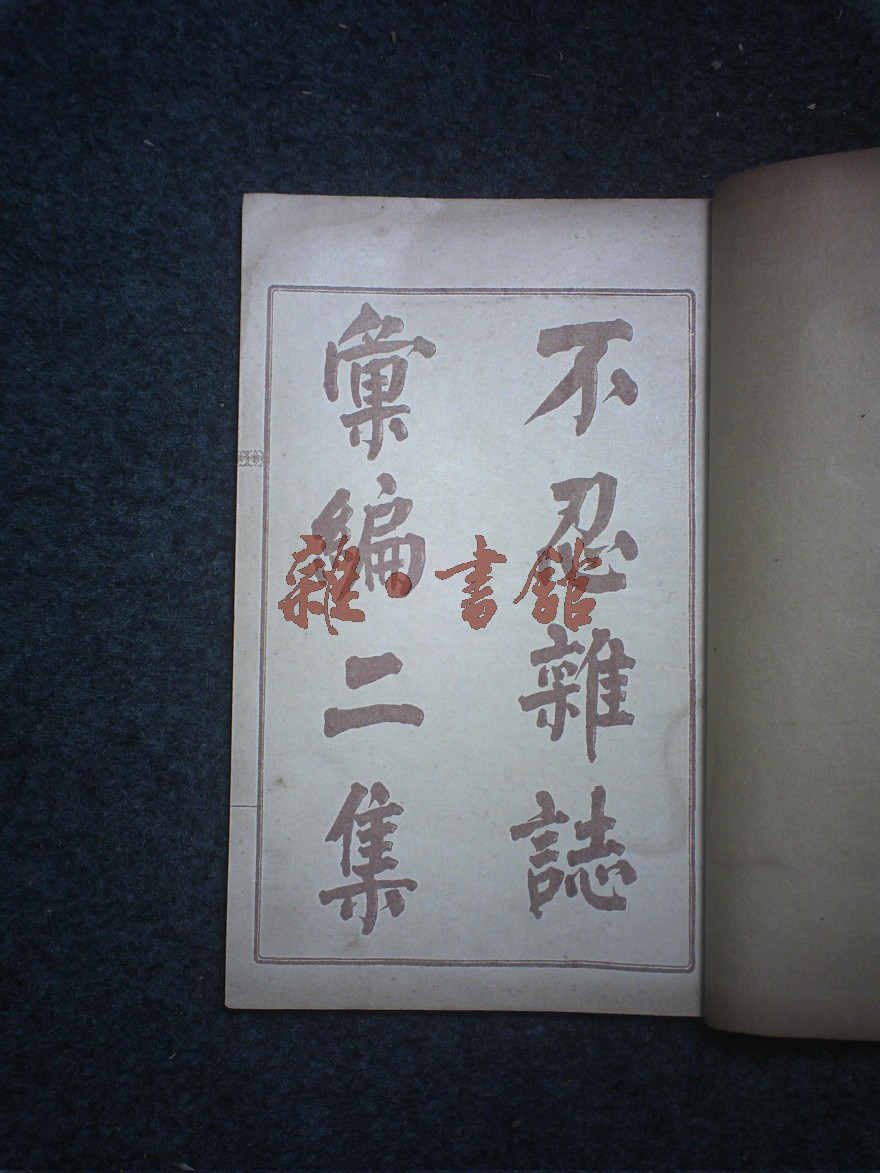 不忍雜誌
彙編二集
雜·書館